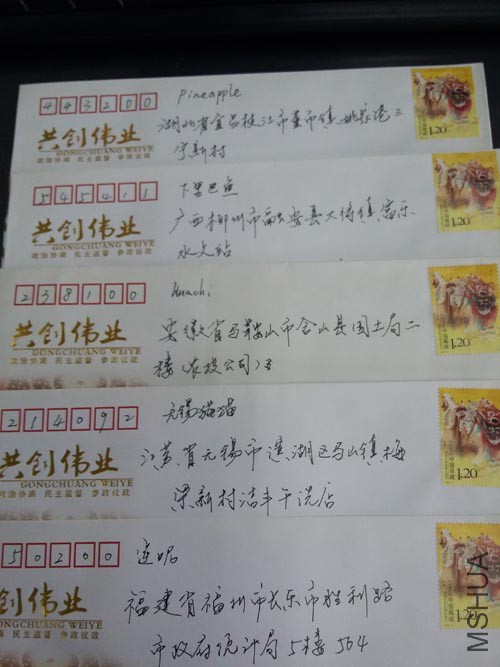 443200
Pineapple
共创伟业
GONGCHUANG WEIYE
政治协商 民主监督 参政议政
湖北省宜昌枝江市董市镇姚家港三
宁新村
1.20
545411
下里巴鱼
共创伟业
GONGCHUANG WEIYE
政治协商 民主监督 参政议政
广西柳州市融安县大将镇富乐
水文站
1.20
238100
共创伟业
GONGCHUANG WEIYE
政治协商 民主监督 参政议政
安徽省马鞍山市含山县国土局二
楼(农投公司)
1.20
214092
无锡猫猫
共创伟业
GONGCHUANG WEIYE
政治协商 民主监督 参政议政
江苏省无锡市滨湖区马山镇梅
梁新村洁丰干洗店
中国邮政
1.20
50200
连呢
创伟业
GONGCHUANG WEIYE
协商 民主监督 参政议政
福建省福州市长乐市胜利路
市政府统计局5楼504
1.20
MSHUA